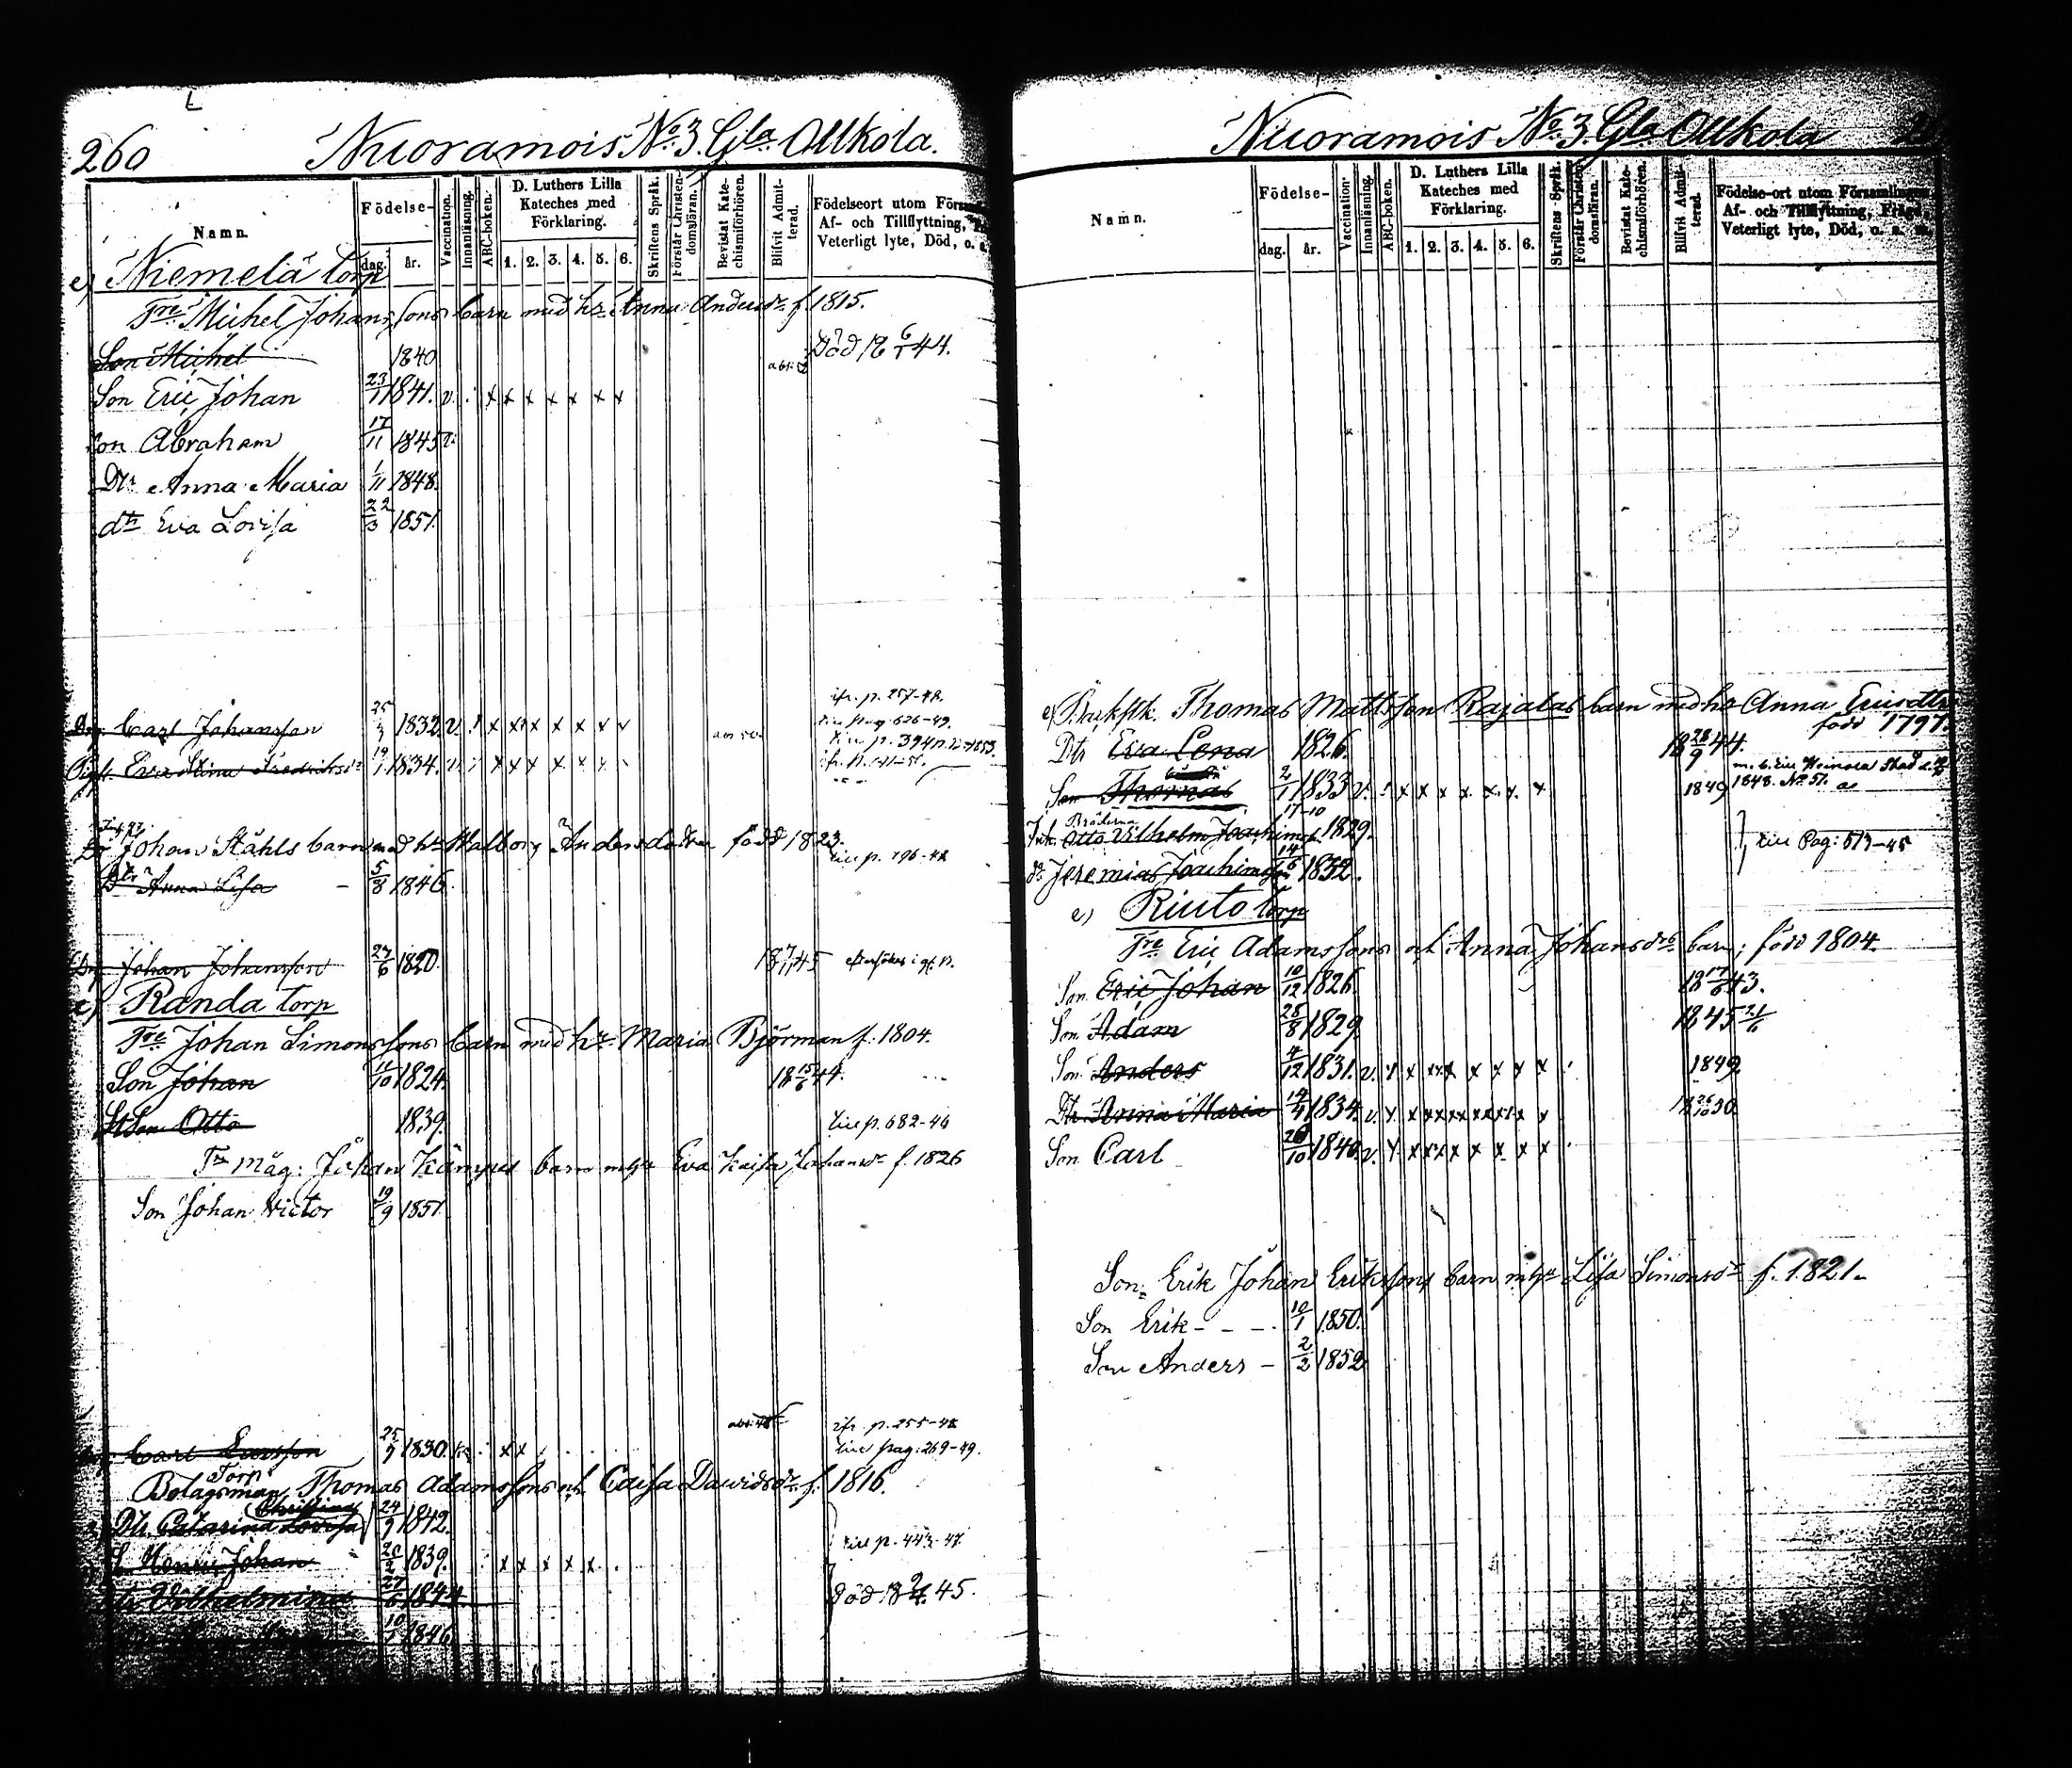 260 Nuoramois No 3. Gla Ollkola.
Namn.
Födelse-
dag. år.
Vaccination.
Innanläsning.
ABC-boken.
D. Luthers Lilla Kateches med Förklaring.
1. 2. 3. 4. 5. 6.
Skriftens Språk.
Förstår Christendomsläran.
Bevistat Katechismiförhören.
Blifvit Admitterad.
Födelseort utom
Af- och Tillflyttning,
Veterligt lyte, Död, o. a.
e) Niemelä torp
Tre Michel Johanssons barn med h: Anna Andersdr f. 1815.
Son Michel 1840 Död 18 6/1 44.
Son Eric Johan 23/1 1841. v. x x x x x x x
Son Abraham 17/11 1845 v.
Dtr Anna Maria 1/11 1848.
dtr Eva Lovisa 22/3 1851.
ifr. p. 257-48.
Dr. Carl Johansson 25/3 1832. v. x x x x x x x
Pig. Eva Stina Fredriksdr 19/1 1834. v. x x x x x x
Johan Ståhls barn med h: Walborg Andersdotter född 1823.
Dtr Anna Lisa - 5/8 1846. till p. 196-48
Dr. Johan Johansson 27/6 1820. 18 7/11 45
e) Randa torp
Tre Johan Simonssons barn med h: Maria Björman f. 1804.
Son Johan 11/10 1824. 18 15/6 44.
Son Otto 1839. till p. 682-46
Tre måg: Johan Kämpes barn m. h. Eva Kaisa Johansdr f. 1826
Son Johan Victor 19/9 1851.
ifr. p. 255-48
Carl Larsson 25/7 1830. x x till pag: 269-49.
Torp
Bolagsman Thomas Adamssons och Caisa Davidsdr f. 1816.
Christina
Dtr. Catarina Lovisa 24/9 1842.
till p. 443-47.
S. Henric Johan 20/2 1839. x x x x x
Dtr Vilhelmina 27/6 1844 död 18 9/4 45.
10/1 1846
Nuoramois No 3. Gla Ollkola
Namn.
Födelse-
dag. år.
Vaccination-
Innanläsning.
ABC-boken.
D. Luthers Lilla Kateches med Förklaring.
1. 2. 3. 4. 5. 6.
Skriftens Språk.
Förstår Christendomsläran.
Bevistat Katechismiförhören.
Blifvit Admitterad.
Födelse-ort utom Församlingen
Af- och Tillflyttning, Frägd,
Veterligt lyte, Död, o. a. m.
e) Backstk. Thomas Mattsson Rajalas barn med h: Anna Ericsdtr
född 1797.
Dtr Eva Lena 1826. 18 28/9 44.
Son Thomas 2/1 1833 v. x x x x x x x 1849 1848. No 51.
17-10
Bröderna
Otto Vilhelm Joachimss. 1829.
till Pag: 513-45
do Jeremias Joachimsson 14/6 1832.
e) Riuto torp
Tre Eric Adamssons och Anna Johansdrs barn; född 1804.
Son Eric Johan 10/12 1826. 18 17/6 43.
Son Adam 28/8 1829. 1845 21/6
Son Anders 4/12 1831. v. x x x x x x x x 1849.
Dtr Anna Maria 14/4 1834. v. x x x x x x x x x
Son Carl 26/10 1840. v. x x x x x x x x
Son: Erik Johan Erikssons barn m. h. Lisa Simonsdr f. 1821.
Son Erik - - - 10/1 1850.
Son Anders - 2/2 1852